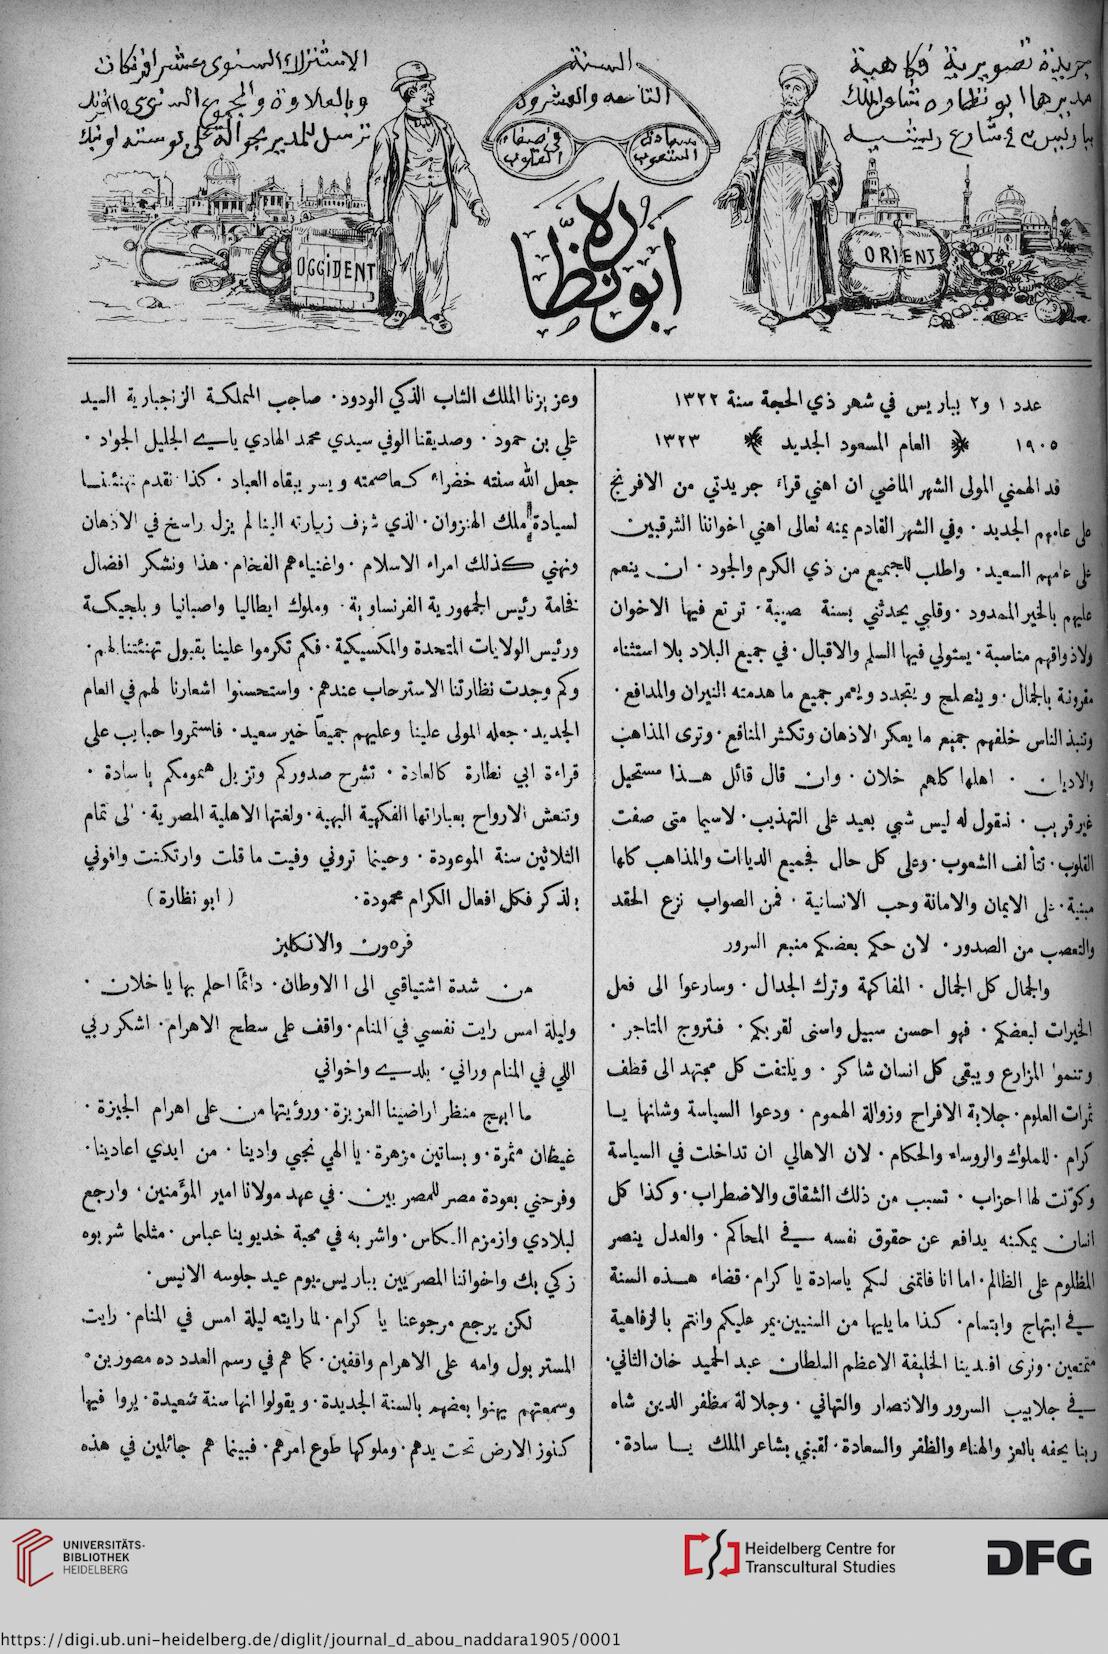 جريدة تصويرية فكاهية
مديرها ابو نظارة شاعر الملك
السنة
التاسعه والعشرون
سعادة الشعوب
في صفاء القلوب
ابو نظارة
الاشتراك السنوى عشر افرنكات
ORIENT
OCCIDENT
عدد ١ و٢ بباريس في شهر ذي الحجة سنة ١٣٢٢
١٩٠٥ العام المسعود الجديد ١٣٢٣
قد الهمني المولى الشهر الماضي ان اهني قراء جريدتي من الافرنج
على عامهم الجديد ٠ وفي الشهر القادم يمنه تعالى اهني اخواننا الشرقيين
على عامهم السعيد ٠ واطلب للجميع من ذي الكرم والجود ٠ ان ينعم
عليهم بالخير الممدود ٠ وقلبي يحدثني بسنة ٠ ترتع فيها الاخوان
ولاذواقهم مناسبة ٠ يستولي فيها السلم والاقبال ٠ في جميع البلاد بلا استثناء
مقرونة بالجمال ٠ ويتصلح ويتجدد ويعمر جميع ما هدمته النيران والمدافع ٠
وتنبذ الناس خلفهم جميع ما يعكر الاذهان وتكثر المنافع ٠ وترى المذاهب
والاديان ٠ اهلها كلهم خلان ٠ وان قال قائل هذا مستحيل
غير قريب ٠ نقول له ليس شي بعيد على التهذيب ٠ لاسيما متى صفت
القلوب ٠ تتألف الشعوب ٠ وعلى كل حال فجميع الديانات والمذاهب كلها
مبنية ٠ على الايمان والامانة وحب الانسانية ٠ فمن الصواب نزع الحقد
والتعصب من الصدور ٠ لان حكم بعضكم منبع السرور
والجمال كل الجمال ٠ المفاكهة وترك الجدال ٠ وسارعوا الى فعل
الخيرات لبعضكم ٠ فهو احسن سبيل واسنى لقربكم ٠ فتروج المتاجر ٠
وتنموا المزارع ويبقى كل انسان شاكر ٠ ويلتفت كل مجتهد الى قطف
ثمرات العلوم ٠ جلابة الافراح وزوالة الهموم ٠ ودعوا السياسة وشانها يا
كرام ٠ للملوك والروساء والحكام ٠ لان الاهالي ان تداخلت في السياسة
وكونت لها احزاب ٠ تسبب من ذلك الشقاق والاضطراب ٠ وكذا كل
انسان يمكنه يدافع عن حقوق نفسه في المحاكم ٠ والعدل ينصر
المظلوم على الظالم ٠ اما انا فاتمنى لكم ياسادة يا كرام ٠ قضاء هذه السنة
في ابتهاج وابتسام ٠ كذا ما يليها من السنيين ٠ يمر عليكم وانتم بالرفاهية
متمتعين ٠ ونرى افندينا الخليفة الاعظم السلطان عبد الحميد خان الثاني ٠
في جلابيب السرور والانتصار والتهاني ٠ وجلالة مظفر الدين شاه
ربنا يحفه بالعز والهناء والظفر والسعادة ٠ لقبني بشاعر الملك يا سادة ٠
وعزيزنا الملك الشاب الذكي الودود ٠ صاحب المملكة الزنجبارية السيد
علي بن حمود ٠ وصديقنا الوفي سيدي محمد الهادي باي الجليل الجواد ٠
جعل الله سنته خضراء كعاصمته ويسر ببقاه العباد ٠ كذا نقدم تهنئتنا
لسيادة ملك الهنزوان ٠ الذي شرف زيارته الينا لم يزل راسخ في الاذهان
ونهني كذلك امراء الاسلام ٠ واغنياءهم الفخام ٠ هذا ونشكر افضال
فخامة رئيس الجمهورية الفرنساوية ٠ وملوك ايطاليا واصبانيا وبلجيكة
ورئيس الولايات المتحدة والمكسيكية ٠ فكم تكرموا علينا بقبول تهنئتنا لهم ٠
وكم وجدت نظارتنا الاسترحاب عندهم ٠ واستحسنوا اشعارنا لهم في العام
الجديد ٠ جعله المولى علينا وعليهم جميعًا خير سعيد ٠ فاستمروا حبايب على
قراءة ابي نظارة كالعادة ٠ تشرح صدوركم وتزيل همومكم يا سادة ٠
وتنعش الارواح بعباراتها الفكهية البهية ٠ ولغتها الاهلية المصرية ٠ الى تمام
الثلاثين سنة الموعودة ٠ وحينما تروني وفيت ما قلت وارتكنت وافوني
بالذكر فكل افعال الكرام محمودة ٠ (ابو نظارة)
فرعون والانكليز
من شدة اشتياقي الى الاوطان ٠ دائمًا احلم بها يا خلان ٠
وليلة امس رايت نفسي في المنام ٠ واقف على سطح الاهرام ٠ اشكر ربي
اللي في المنام وراني ٠ بلدي واخواني
ما ابهج منظر اراضينا العزيزة ٠ ورؤيتها من على اهرام الجيزة ٠
غيطان مثمرة ٠ وبساتين مزهرة ٠ يا الهي نجي وادينا ٠ من ايدي اعادينا ٠
وفرحني بعودة مصر للمصريين ٠ في عهد مولانا امير المؤمنين ٠ وارجع
لبلادي وازمزم الكاس ٠ واشربه في محبة خديوينا عباس ٠ مثلما شربوه
زكي بك واخواننا المصريين بباريس ٠ يوم عيد جلوسه الانيس ٠
لكن يرجع مرجوعنا يا كرام ٠ لما رايته ليلة امس في المنام ٠ رايت
المستر بول وامه على الاهرام واقفين ٠ كما هم في رسم العدد ده مصورين ٠
وسمعتهم يهنوا بعضهم بالسنة الجديدة ٠ ويقولوا انها سنة سعيدة ٠ يروا فيها
كنوز الارض تحت يدهم ٠ وملوكها طوع امرهم ٠ فبينما هم جائلين في هذه
UNIVERSITÄTS-
BIBLIOTHEK
HEIDELBERG
Heidelberg Centre for
Transcultural Studies
DFG
https://digi.ub.uni-heidelberg.de/diglit/journal_d_abou_naddara1905/0001